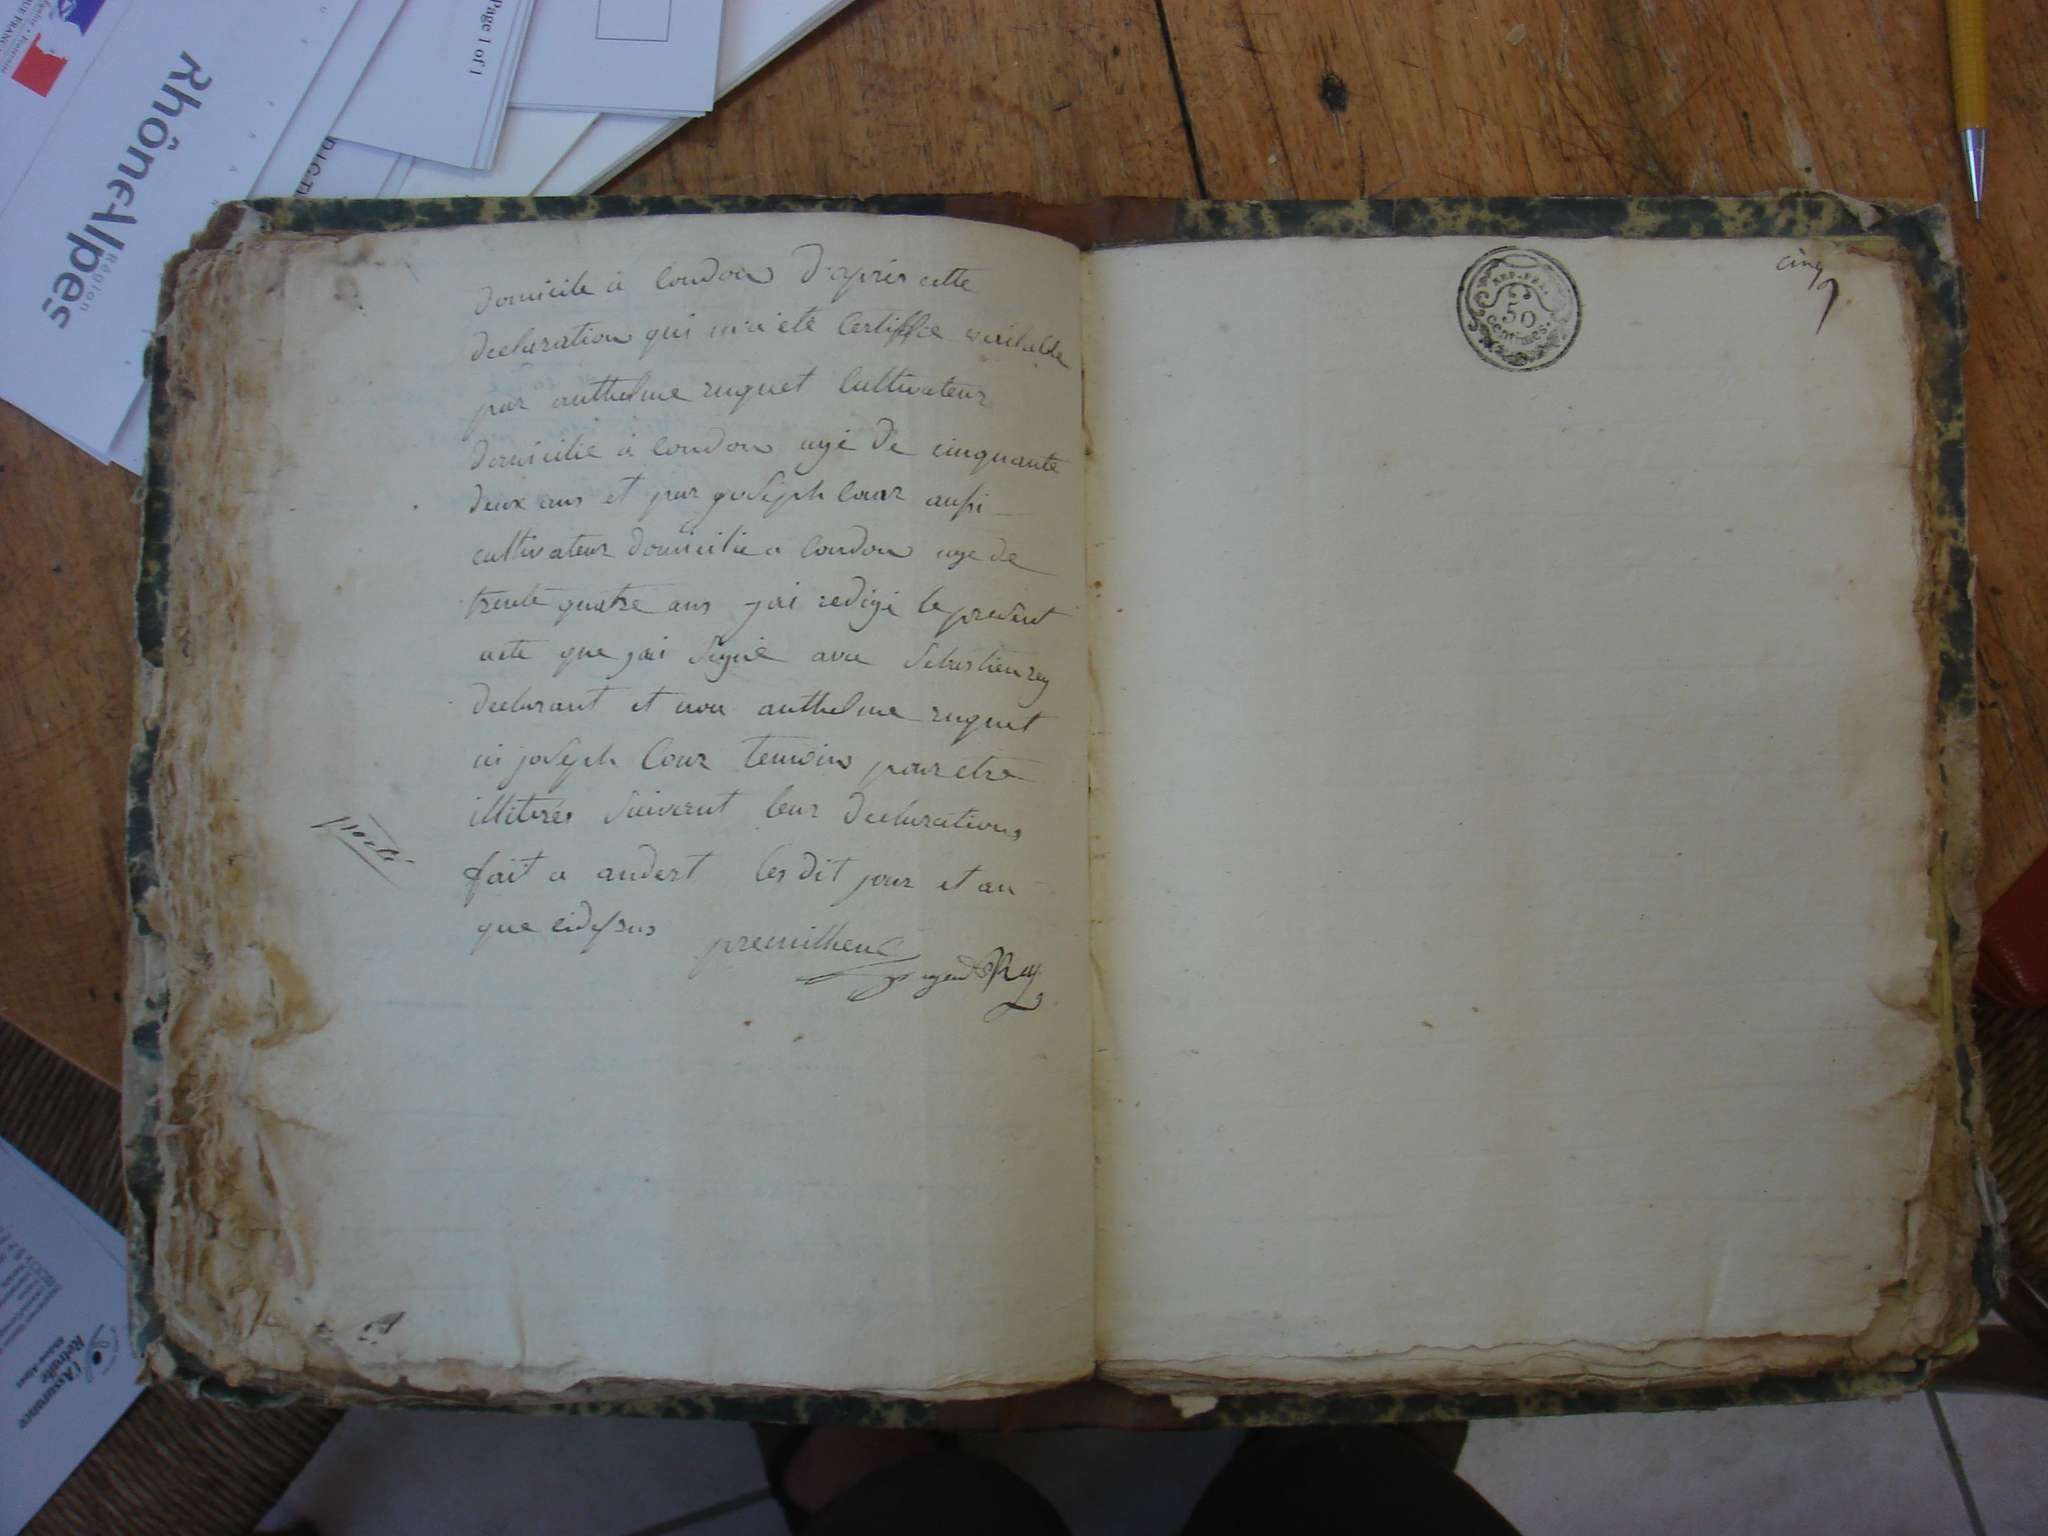 Rhône-Alpes
Région
Page 1 of 1
domicile à Condon d'après cette
declaration qui m'a été Certiffie veritable
par anthelme ruguet Cultivateur
domicilie à Condon agé de cinquante
deux ans et par joseph Cour aussi
cultivateur domicilie a Condon age de
trente quatre ans jai redigé le present
acte que jai Signé avec Sebastien rey
declarant et non anthelme ruguet
ni joseph Cour temoins pour etre
illiterés Suivant leur declarations
fait a andert les dit jour et an
que cidessus
premilheu
Rey
porté
cinq
REP. FRA.
50
centimes.
l'Assurance
Retraite
Rhône-Alpes